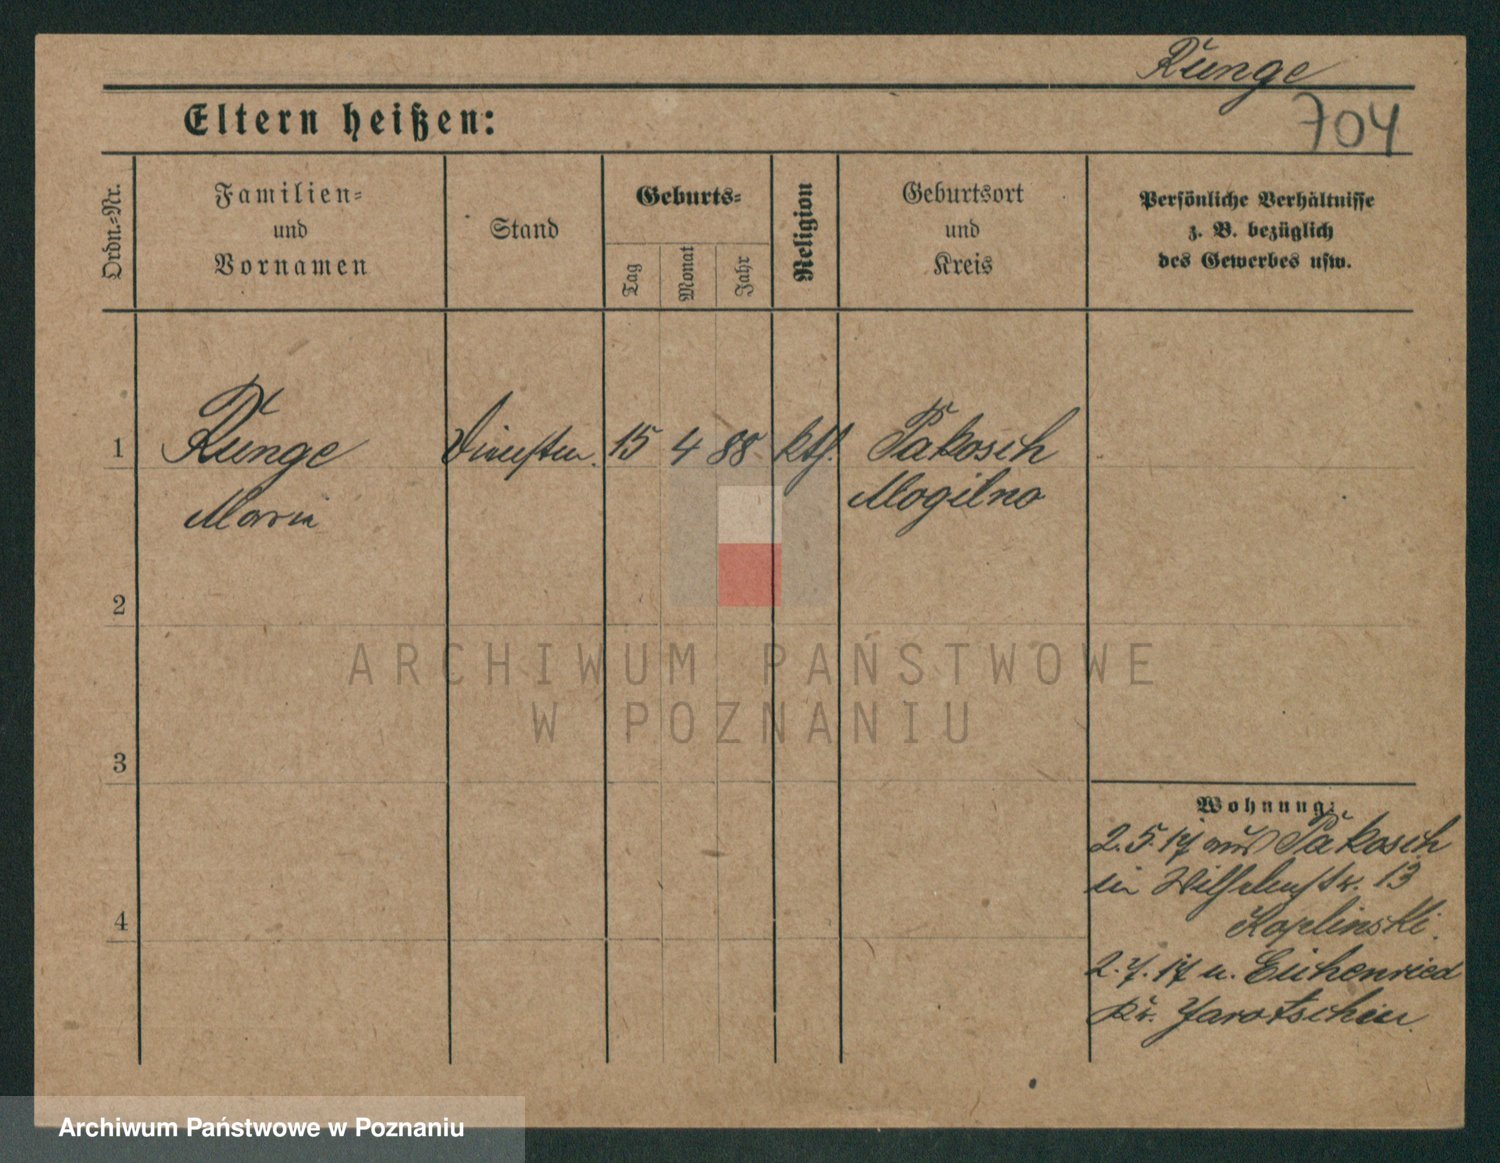 Runge
704
Eltern heißen:
Ordn.-Nr.
Familien-
und
Vornamen
Stand
Geburts-
Tag
Monat
Jahr
Religion
Geburtsort
und
Kreis
Persönliche Verhältnisse
z. B. bezüglich
des Gewerbes usw.
1
Runge
Maria
Dienstm.
15
4
88
kth.
Pakosch
Mogilno
2
3
4
Wohnung:
2.5.17 aus Pakosch
in Wilhelmstr. 13
Koplinski.
2.7.17 n. Eichenried
Kr. Jarotschin
ARCHIWUM PAŃSTWOWE
W POZNANIU
Archiwum Państwowe w Poznaniu